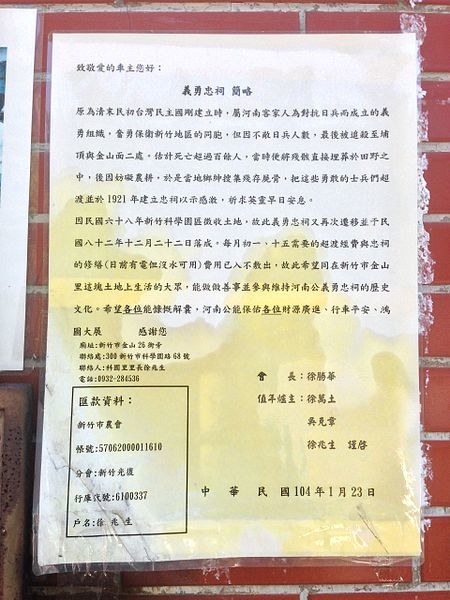 致敬愛的車主您好：
義勇忠祠 簡略
原為清末民初台灣民主國剛建立時，屬河南客家人為對抗日兵而成立的義
勇組織，奮勇保衛新竹地區的同胞，但因不敵日兵人數，最後被追殺至埔
頂與金山面二處，估計死亡超過百餘人，當時便將殘骸直接埋葬於田野之
中，後因妨礙農耕，於是當地鄉紳搜集殘存脆骨，把這些勇敢的士兵們超
渡並於1921年建立忠祠以示感激，祈求英靈早日安息。
因民國六十八年新竹科學園區徵收土地，故此義勇忠祠又再次遷移並于民
國八十二年十二月二十二日落成。每月初一、十五需要的超渡經費與忠祠
的修繕(日前有電但沒水可用)費用已入不敷出，故此希望同在新竹市金山
里這塊土地上生活的大眾，能做做善事並參與維持河南公義勇忠祠的歷史
文化。希望各位能慷慨解囊，河南公能保佑各位財源廣進、行車平安、鴻
圖大展 感謝您
廟址:新竹市金山26街旁
聯絡處:300新竹市科學園路68號
聯絡人:科園里里長徐兆生
電話:0932-284536
會 長：徐勝華
值年爐主：徐萬土
吳克章
徐兆生 謹啓
匯款資料：
新竹市農會
帳號:57062000011610
分會:新竹光復
行庫代號:6100337
戶名:徐 兆 生
中 華 民 國104年1月23日